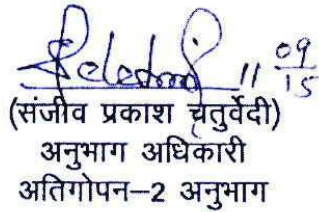 11 09
15
(संजीव प्रकाश चतुर्वेदी)
अनुभाग अधिकारी
अतिगोपन–2 अनुभाग